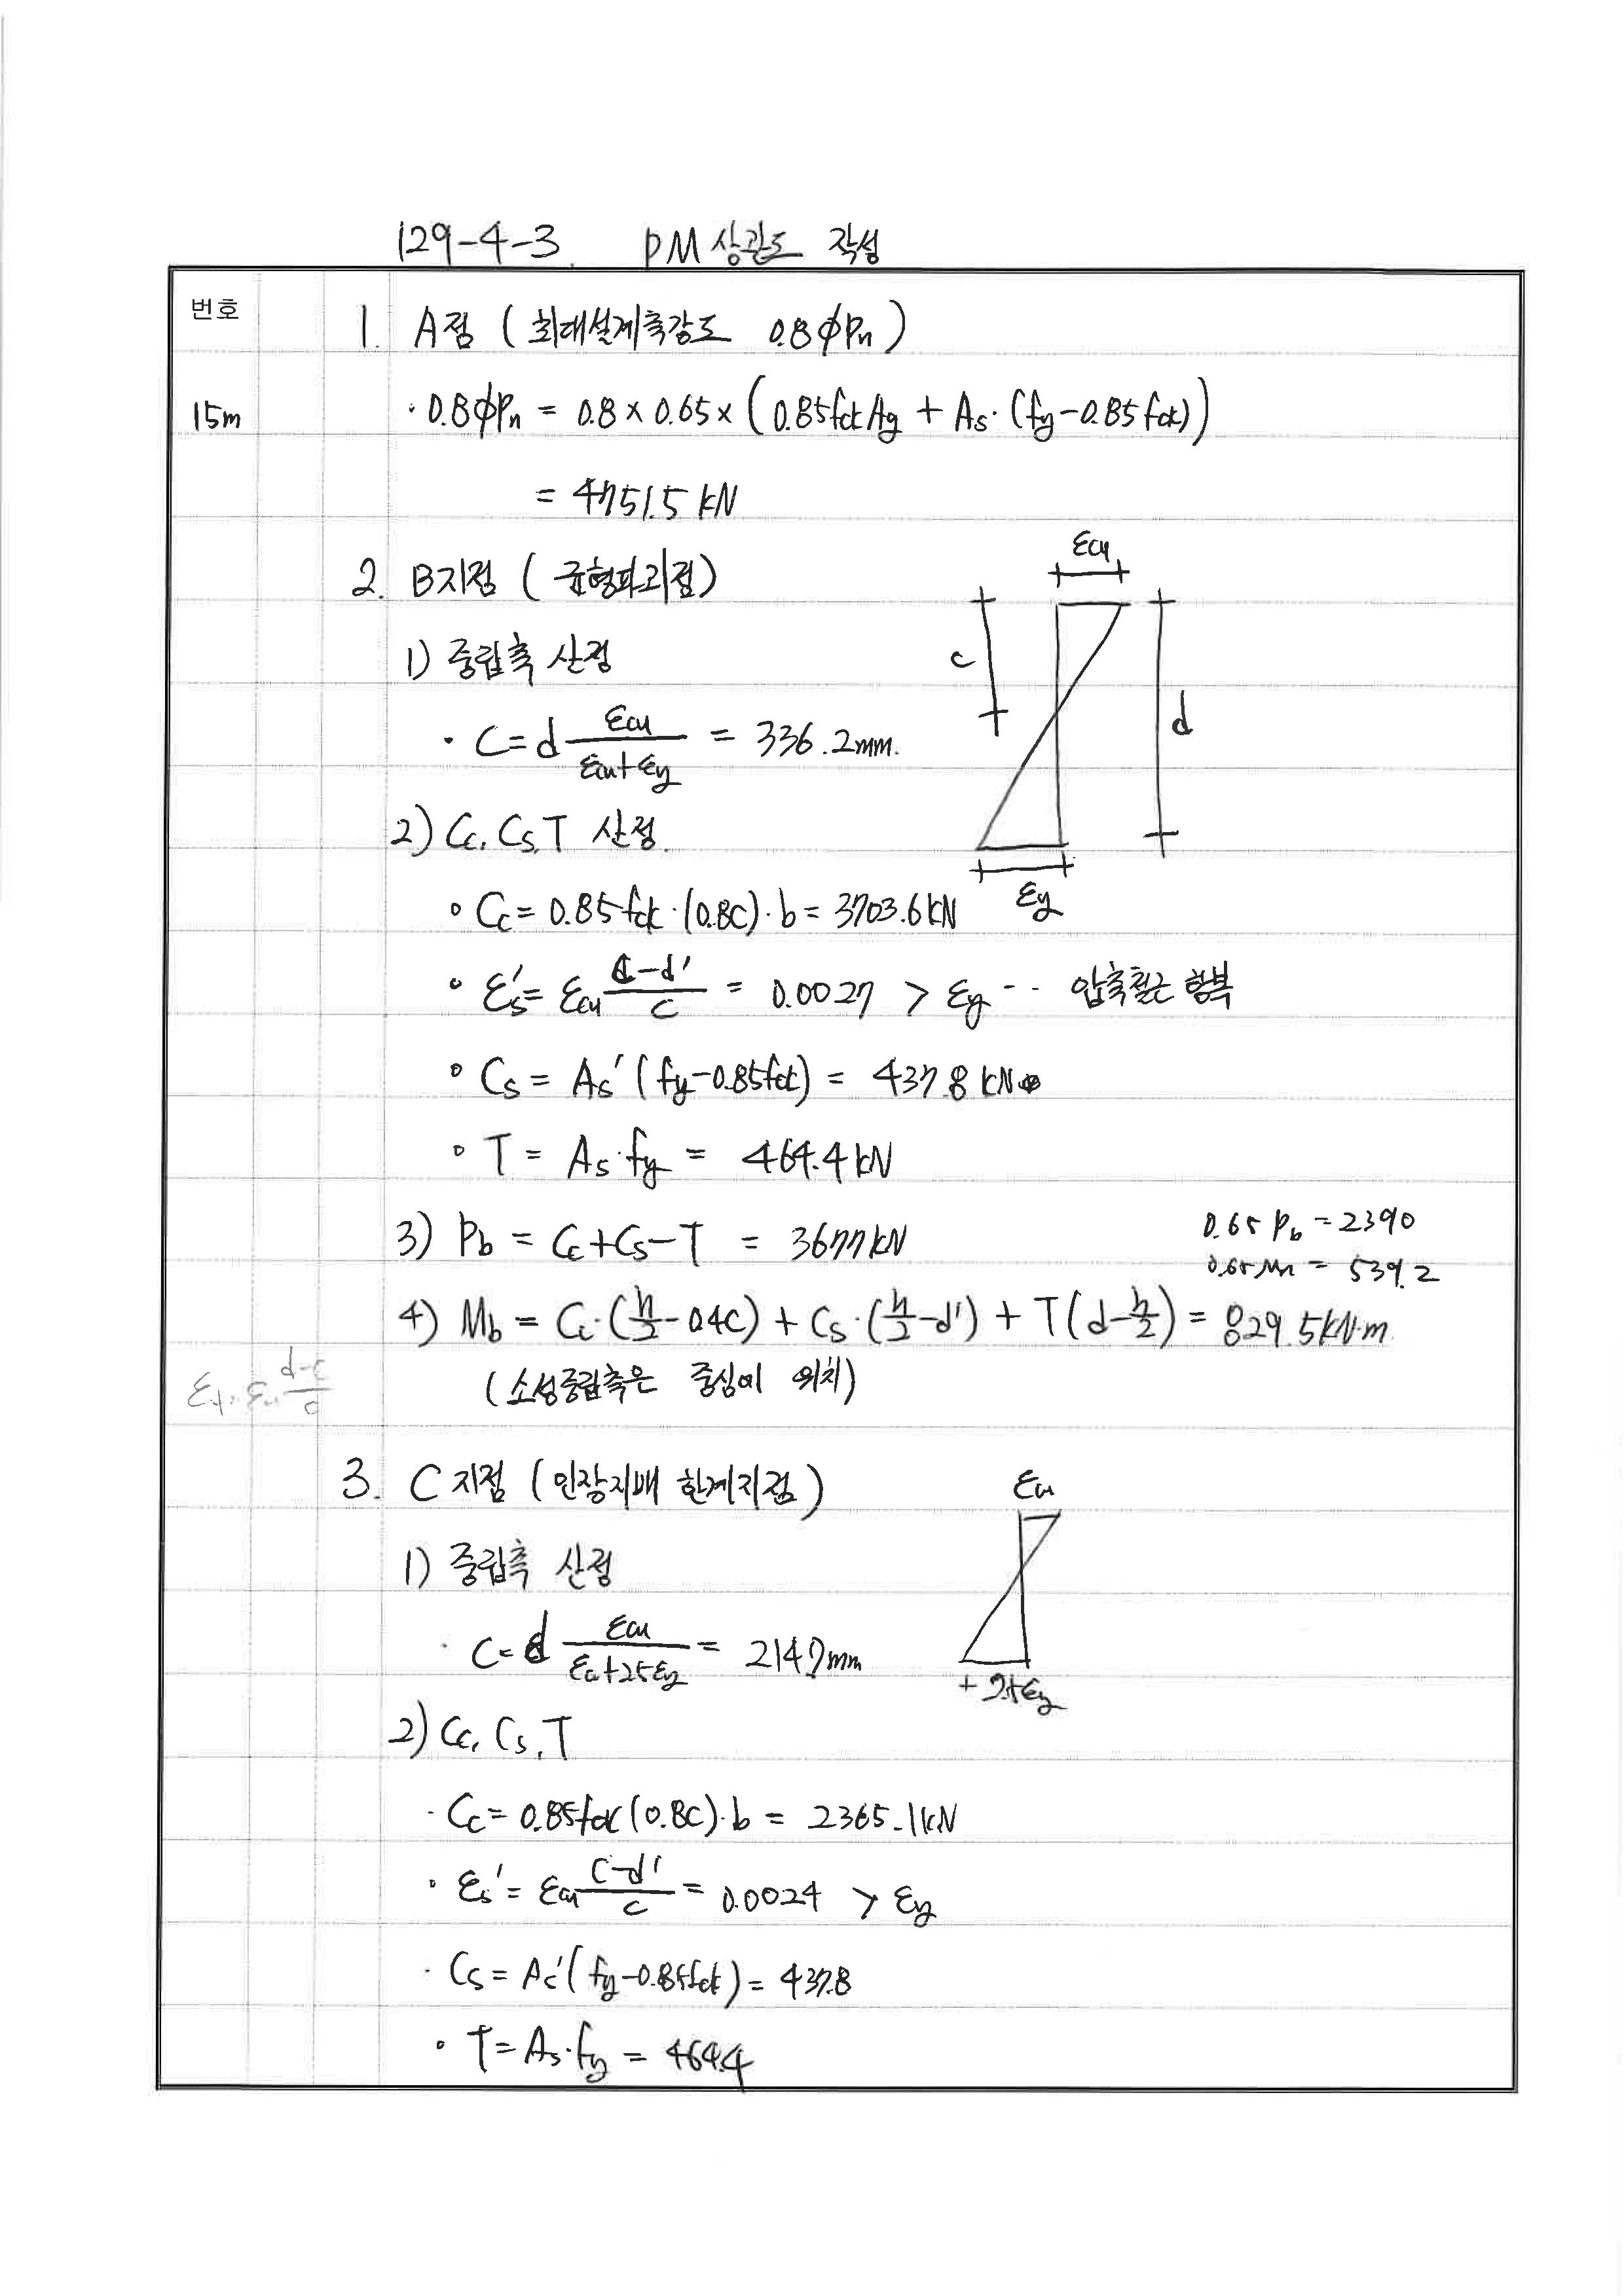 129-4-3. PM 상관도 작성
번호
1. A점 ( 최대설계축강도 0.8ϕPn )
15m
· 0.8ϕPn = 0.8 × 0.65 × ( 0.85fck Ag + As · (fy - 0.85 fck) )
= 4751.5 kN
2. B지점 ( 균형파괴점 )
εcu
1) 중립축 산정
c
d
· C = d εcu / (εcu + εy) = 336.2mm.
2) Cc, Cs, T 산정.
εy
∘ Cc = 0.85 fck · (0.8C) · b = 3703.6 kN
∘ εs' = εcu (c - d') / c = 0.0027 > εy -- 압축철근 항복
∘ Cs = As' (fy - 0.85fck) = 437.8 kN
∘ T = As · fy = 464.4 kN
3) Pb = Cc + Cs - T = 3677 kN
0.65 Pb = 2390
0.65 Mn = 539.2
4) Mb = Cc · (h/2 - 0.4C) + Cs · (h/2 - d') + T (d - h/2) = 829.5 kN·m
(소성중립축은 중심에 위치)
εt = εcu (d - c) / c
3. C 지점 ( 인장지배 한계지점 )
εcu
1) 중립축 산정
· C = d εcu / (εcu + 2.5εy) = 214.7mm
2.5εy
2) Cc, Cs, T
· Cc = 0.85fck (0.8C) · b = 2365.1 kN
· εs' = εcu (C - d') / c = 0.0024 > εy
· Cs = As' (fy - 0.85fck) = 437.8
∘ T = As · fy = 464.4